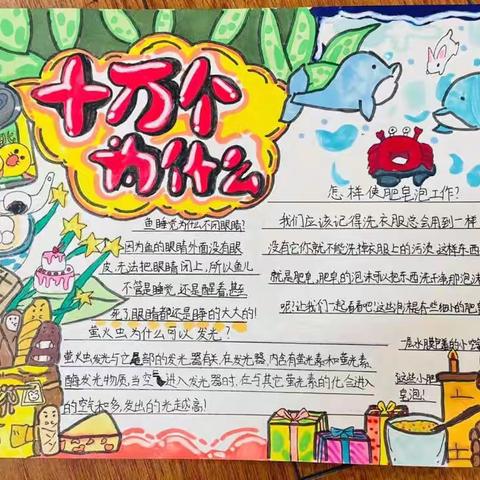 十万个
为什么
鱼睡觉为什么不闭眼睛?
因为鱼的眼睛外面没有眼
皮,无法把眼睛闭上,所以鱼儿
不管是睡觉,还是醒着,甚至
死了眼睛都还是睁的大大的!
萤火虫为什么可以发光?
萤火虫发光与它尾部的发光器有关,在发光器内含有萤光素和萤光素
酶发光物质,当空气进入发光器时,在与其它萤光素的化合进入
的空气和多,发出的光越高!
怎样使肥皂泡工作?
我们应该记得洗衣服总会用到一样
没有它你就不能洗掉衣服上的污渍,这样东西
就是肥皂,肥皂的泡沫可以把东西洗干净,那泡沫
呢?让我们一起看看吧!这些泡沫是有些细小的肥皂
一层水膜包着的小空
这些小肥
皂泡!